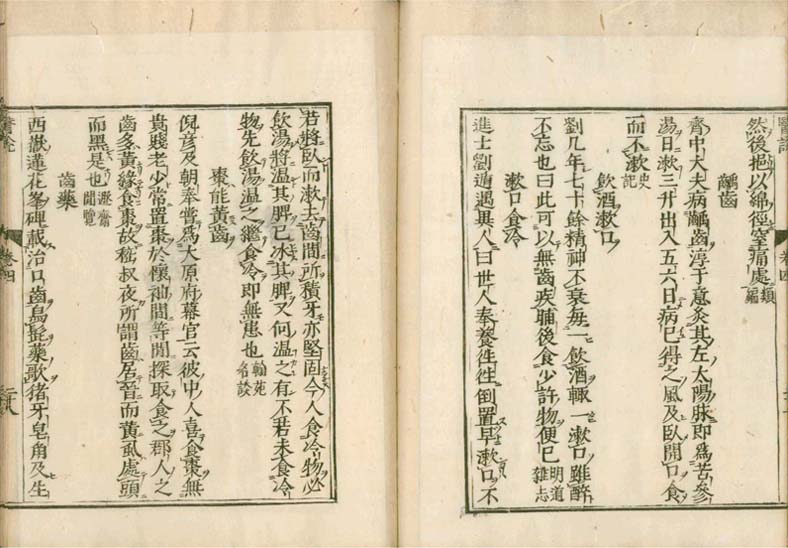 然後挹以綿徑窒痛處類編
齲齒
齊中大夫病齲齒淳于意灸其左太陽脉即爲苦參
湯日漱三升出入五六日病已得之風及臥開口食
而不漱史記
飲酒漱口
劉几年七十餘精神不衰每一飲酒輙一漱口雖醉
不忘也曰此可以無齒疾晡後食少許物便已明道雜志
漱口食冷
進士劉遁遇異人曰世人奉養徃徃倒置早漱口不
若將臥而漱去齒間所積牙亦堅固今人食冷物必
飲湯將温其脾已冰其脾又何温之有不若未食冷
物先飲湯温之繼食冷即無患也翰苑名談
棗能黃齒
倪彦及朝奉嘗爲大原府幕官云彼中人喜食棗無
貴賤老少常置棗於懷袖間等閒探取食之郡人之
齒多黃緣食棗故嵇叔夜所謂齒居晉而黃虱處頭
而黑是也遯齋閒覽
齒藥
西嶽蓮花峯碑載治口齒烏髭藥歌猪牙皂角及生
卷四
醫說
卷四